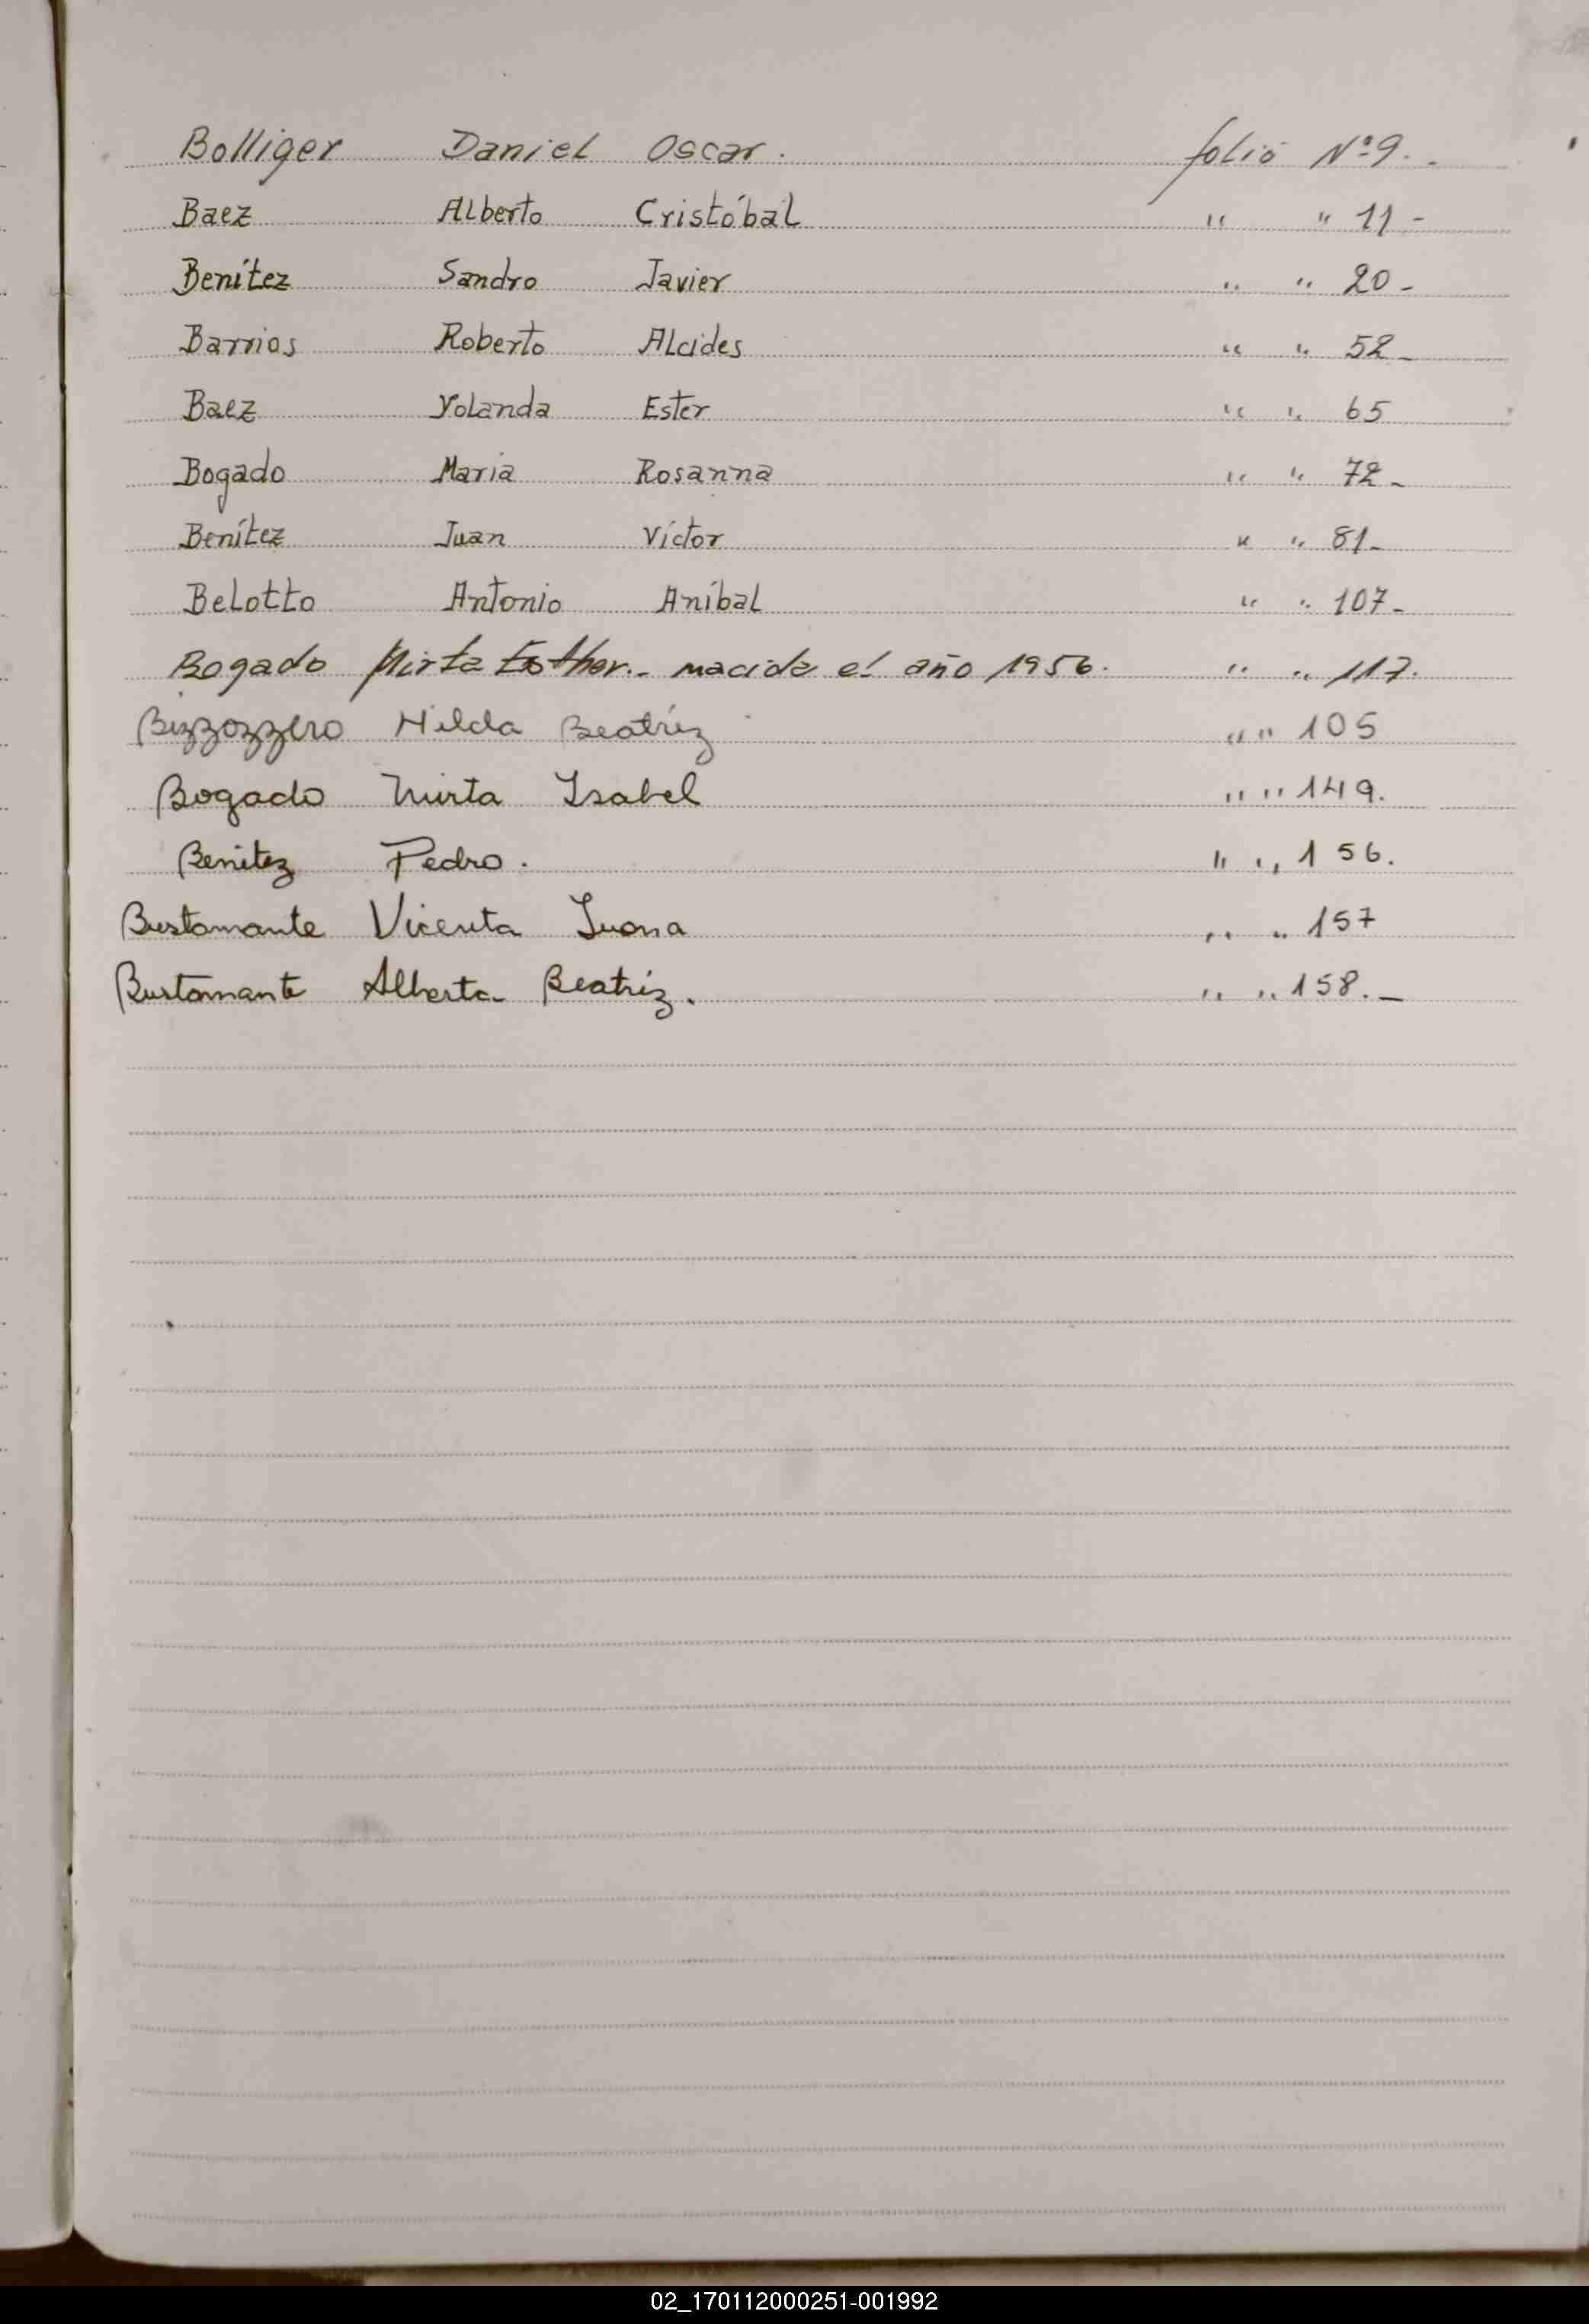 Bolliger Daniel Oscar. folio Nº 9.-
Baez Alberto Cristóbal " " 11-
Benítez Sandro Javier " " 20-
Barrios Roberto Alcides " " 52-
Baez Yolanda Ester " " 65
Bogado Maria Rosanna " " 72-
Benítez Juan Víctor " " 81-
Belotto Antonio Aníbal " " 107-
Bogado Mirta Esther.- nacida el año 1956. " " 117.
Bizzozzero Hilda Beatríz " " 105
Bogado Mirta Isabel " " 149.
Benitez Pedro. " " 156.
Bustamante Vicenta Juana " " 157
Bustamante Alberta Beatriz. " " 158.-
02_170112000251-001992